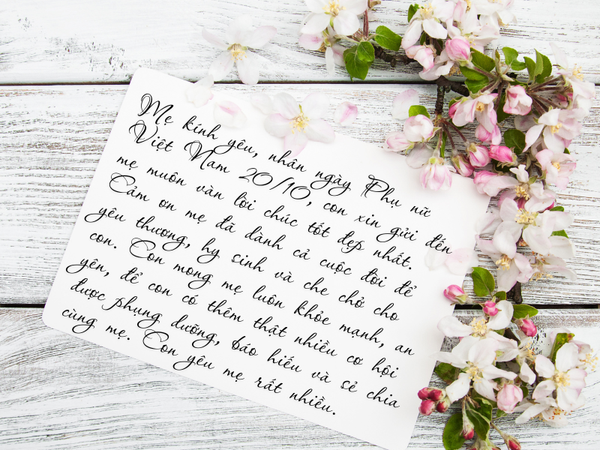 Mẹ kính yêu, nhân ngày Phụ nữ
Việt Nam 20/10, con xin gửi đến
mẹ muôn vàn lời chúc tốt đẹp nhất.
Cảm ơn mẹ đã dành cả cuộc đời để
yêu thương, hy sinh và che chở cho
con. Con mong mẹ luôn khỏe mạnh, an
yên, để con có thêm thật nhiều cơ hội
được phụng dưỡng, báo hiếu và sẻ chia
cùng mẹ. Con yêu mẹ rất nhiều.